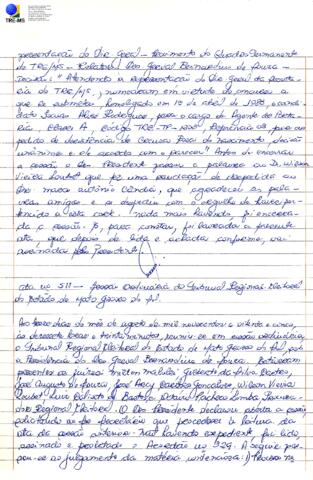 TRE-MS
representação do Dir. Geral - Provimento do Quadro Permanente
do TRE/MS. - Relator: Des. Gerval Bernardino de Souza -
Decisão: "Atendendo a representação do Dir. Geral da Secreta-
ria do TRE/MS, nomearam em virtude de concurso a
que se submeteu, homologado em 1º de abril de 1985, o candi-
dato Alves Rodrigues, para o cargo de Agente de Porta-
ria, Classe A, Código TRE-TP-
pedido de desistência de Rosa do Nascimento, decisão
unânime e de acordo com o parecer." Antes de encerrar
a sessão o Des. Presidente passou a palavra ao D. Wilson
Vieira Loubet que fez uma saudação de despedida ao
Dr. Marco Antônio Cândia, que agradeceu as pala-
vras amigas e se despediu com o orgulho de haver per-
tencido a esta corte. Nada mais havendo, foi encerra-
da a sessão. E, para constar, foi lavrada a presente
ata, que depois de lida e achada conforme, vai
assinada pelo Presidente.
Ata nº 511 - Sessão ordinária do Tribunal Regional Eleitoral
do Estado de Mato Grosso do Sul.
Aos treze dias do mês de agosto de mil novecentos e oitenta e cinco,
às dezessete horas e trinta minutos, reuniu-se em sessão ordinária,
o Tribunal Regional Eleitoral do Estado de Mato Grosso do Sul, sob
a Presidência do Des. Gerval Bernardino de Souza. Estiveram
presentes os juízes: Milton Malulei, Gilberto da Silva Castro,
José Augusto de Souza, José Aecy Gonçalves, Wilson Vieira
Loubet, Luiz e Octavio Pacheco Lomba, Procura-
dor Regional Eleitoral. O Des. Presidente declarou aberta a sessão
solicitando ao Sr. Secretário que procedesse à leitura da
ata da sessão anterior. Não havendo expediente, foi lido,
assinado e publicado o Acórdão nº 929. A seguir pas-
sou-se ao julgamento da matéria